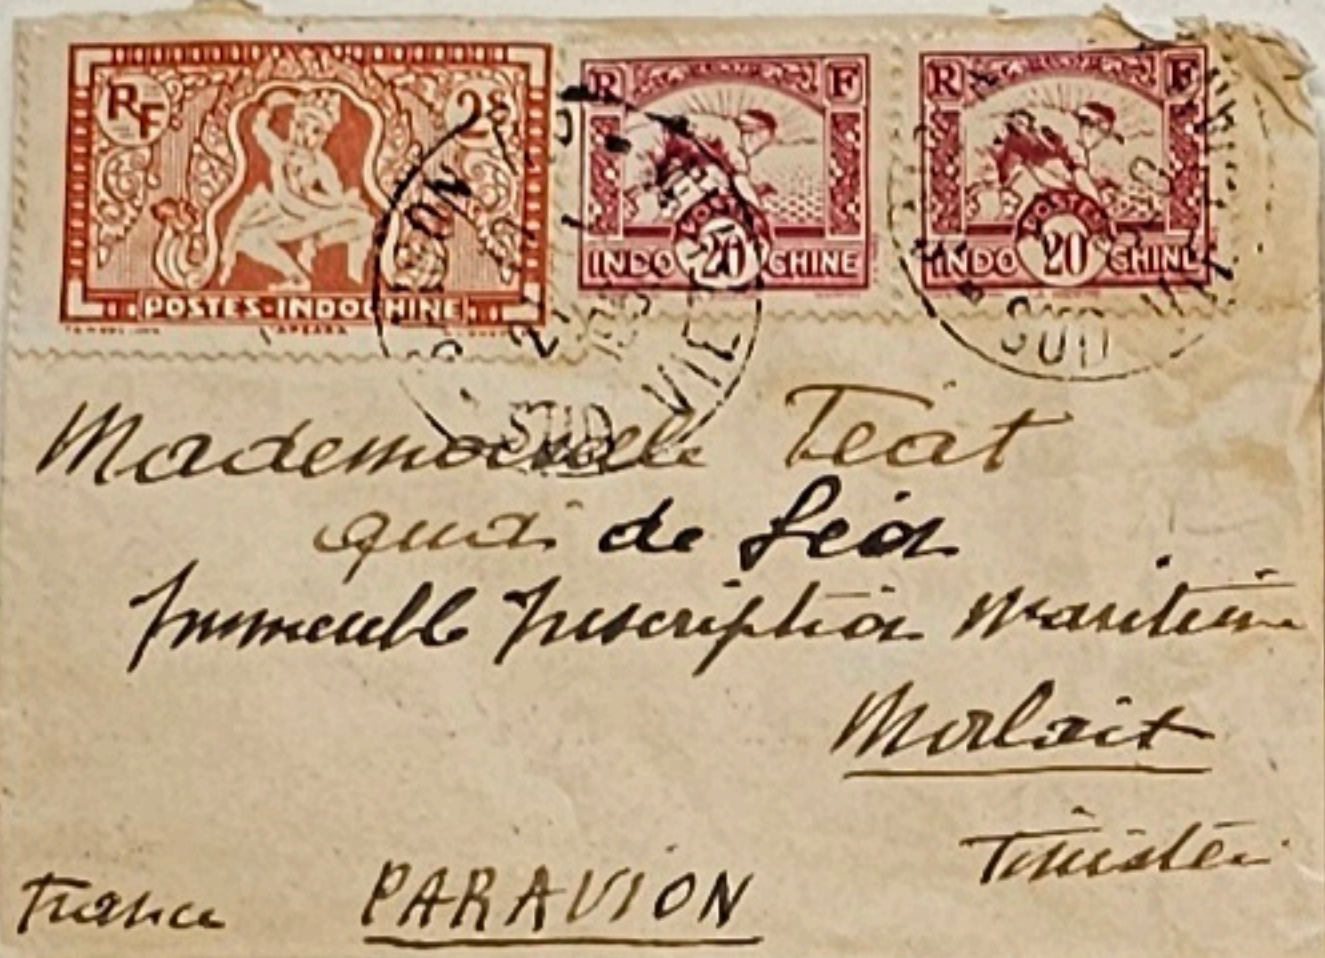 RF
2$
POSTES-INDOCHINE
APSARA
R F
POSTES
20
INDO CHINE
R F
POSTES
20
INDO CHINE
SUD
SUD
Mademoiselle Téat
quai de Léon
Immeuble Inscription Maritime
Morlaix
Finistère
France
PARAVION